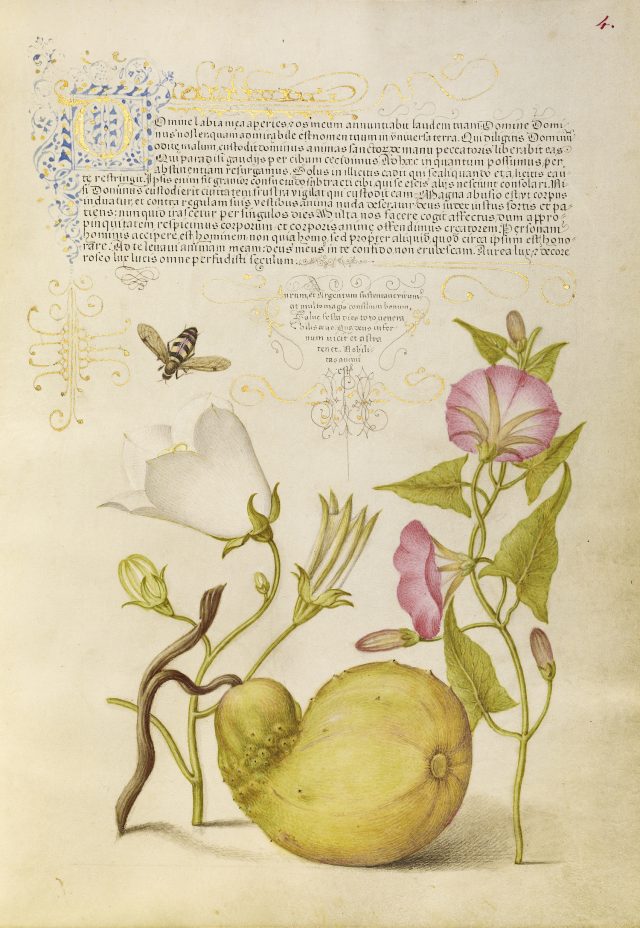 4.
Domine labia mea aperies: os meum annuntiabit laudem tuam. Domine Domi-
nus noster quam admirabile est nomen tuum in universa terra. Qui diligitis Dominum
odite malum, custodit dominus animas sanctorum de manu peccatoris liberabit eas.
Qui paradisi gaudijs per cibum cecidimus Ad haec in quantum possumus, per
abstinentiam resurgamus. Solus in illicitis cadit qui se aliquando et a licitis cau-
te restringit. Ipsis enim fit gravior consuetudo subtracti cibi, qui se escis alijs nesciunt consolari. Ni-
si Dominus custodierit civitatem frustra vigilat qui custodit eam. Magna abusio est, vt corpus
induatur, et contra regulam suis vestibus anima nuda deseratur. Deus iudex iustus fortis et pa-
tiens: nunquid irascetur per singulos dies. Multa nos facere cogit affectus, dum appro-
pinquitatem respicimus corporum et corporis animę offendimus creatorem. Personam
hominis accipere est, hominem non quia homo, sed propter aliquid, quod circa ipsum est, hono-
rare. Ad te levavi animam meam: deus meus in te confido non erubescam. Aurea lux, et decore
roseo lux lucis omne perfudisti seculum.
Aurum, et Argentum sustentaverunt
at multo magis consilium bonum.
Salve festa dies toto venera
bilis aevo. Qua deus infer
num vicit et astra
tenet. Nobili-
tas animi
est